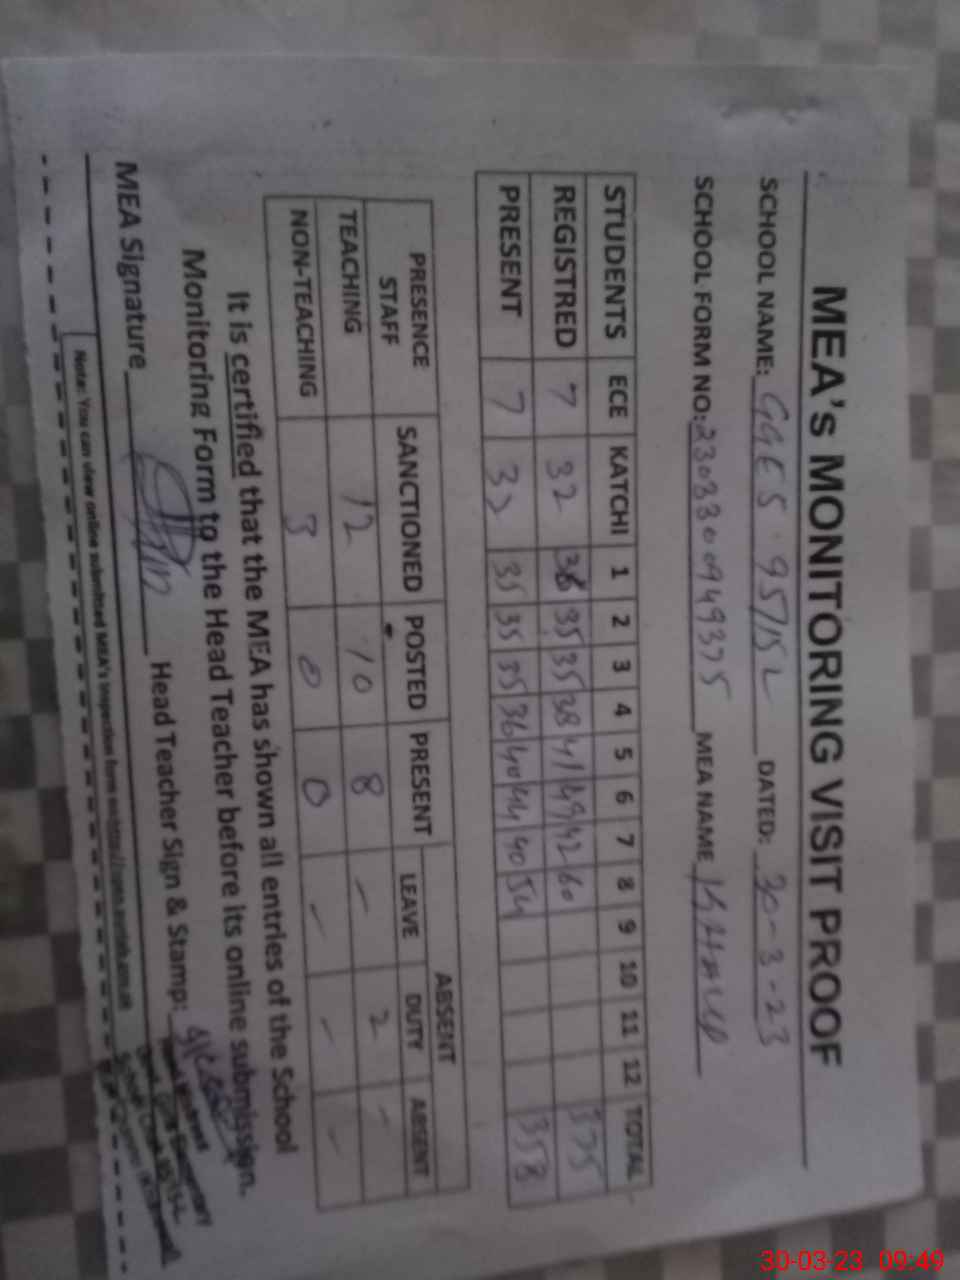 MEA's MONITORING VISIT PROOF
SCHOOL NAME: GGES 95/15L DATED: 30-3-23
SCHOOL FORM NO: MEA NAME
STUDENTS ECE KATCHI 1 2 3 4 5 6 7 8 9 10 11 12 TOTAL
REGISTRED 7 32 36 35 35 38 41 49 42 60 375
PRESENT 7 32 35 35 35 36 40 44 40 54 358
PRESENCE STAFF SANCTIONED POSTED PRESENT ABSENT
LEAVE DUTY ABSENT
TEACHING 12 10 8 - 2 -
NON-TEACHING 3 0 0 - - -
It is certified that the MEA has shown all entries of the School
Monitoring Form to the Head Teacher before its online submission.
MEA Signature Head Teacher Sign & Stamp:
Note: You can view online submitted MEA's inspection form
30-03-23 09:49